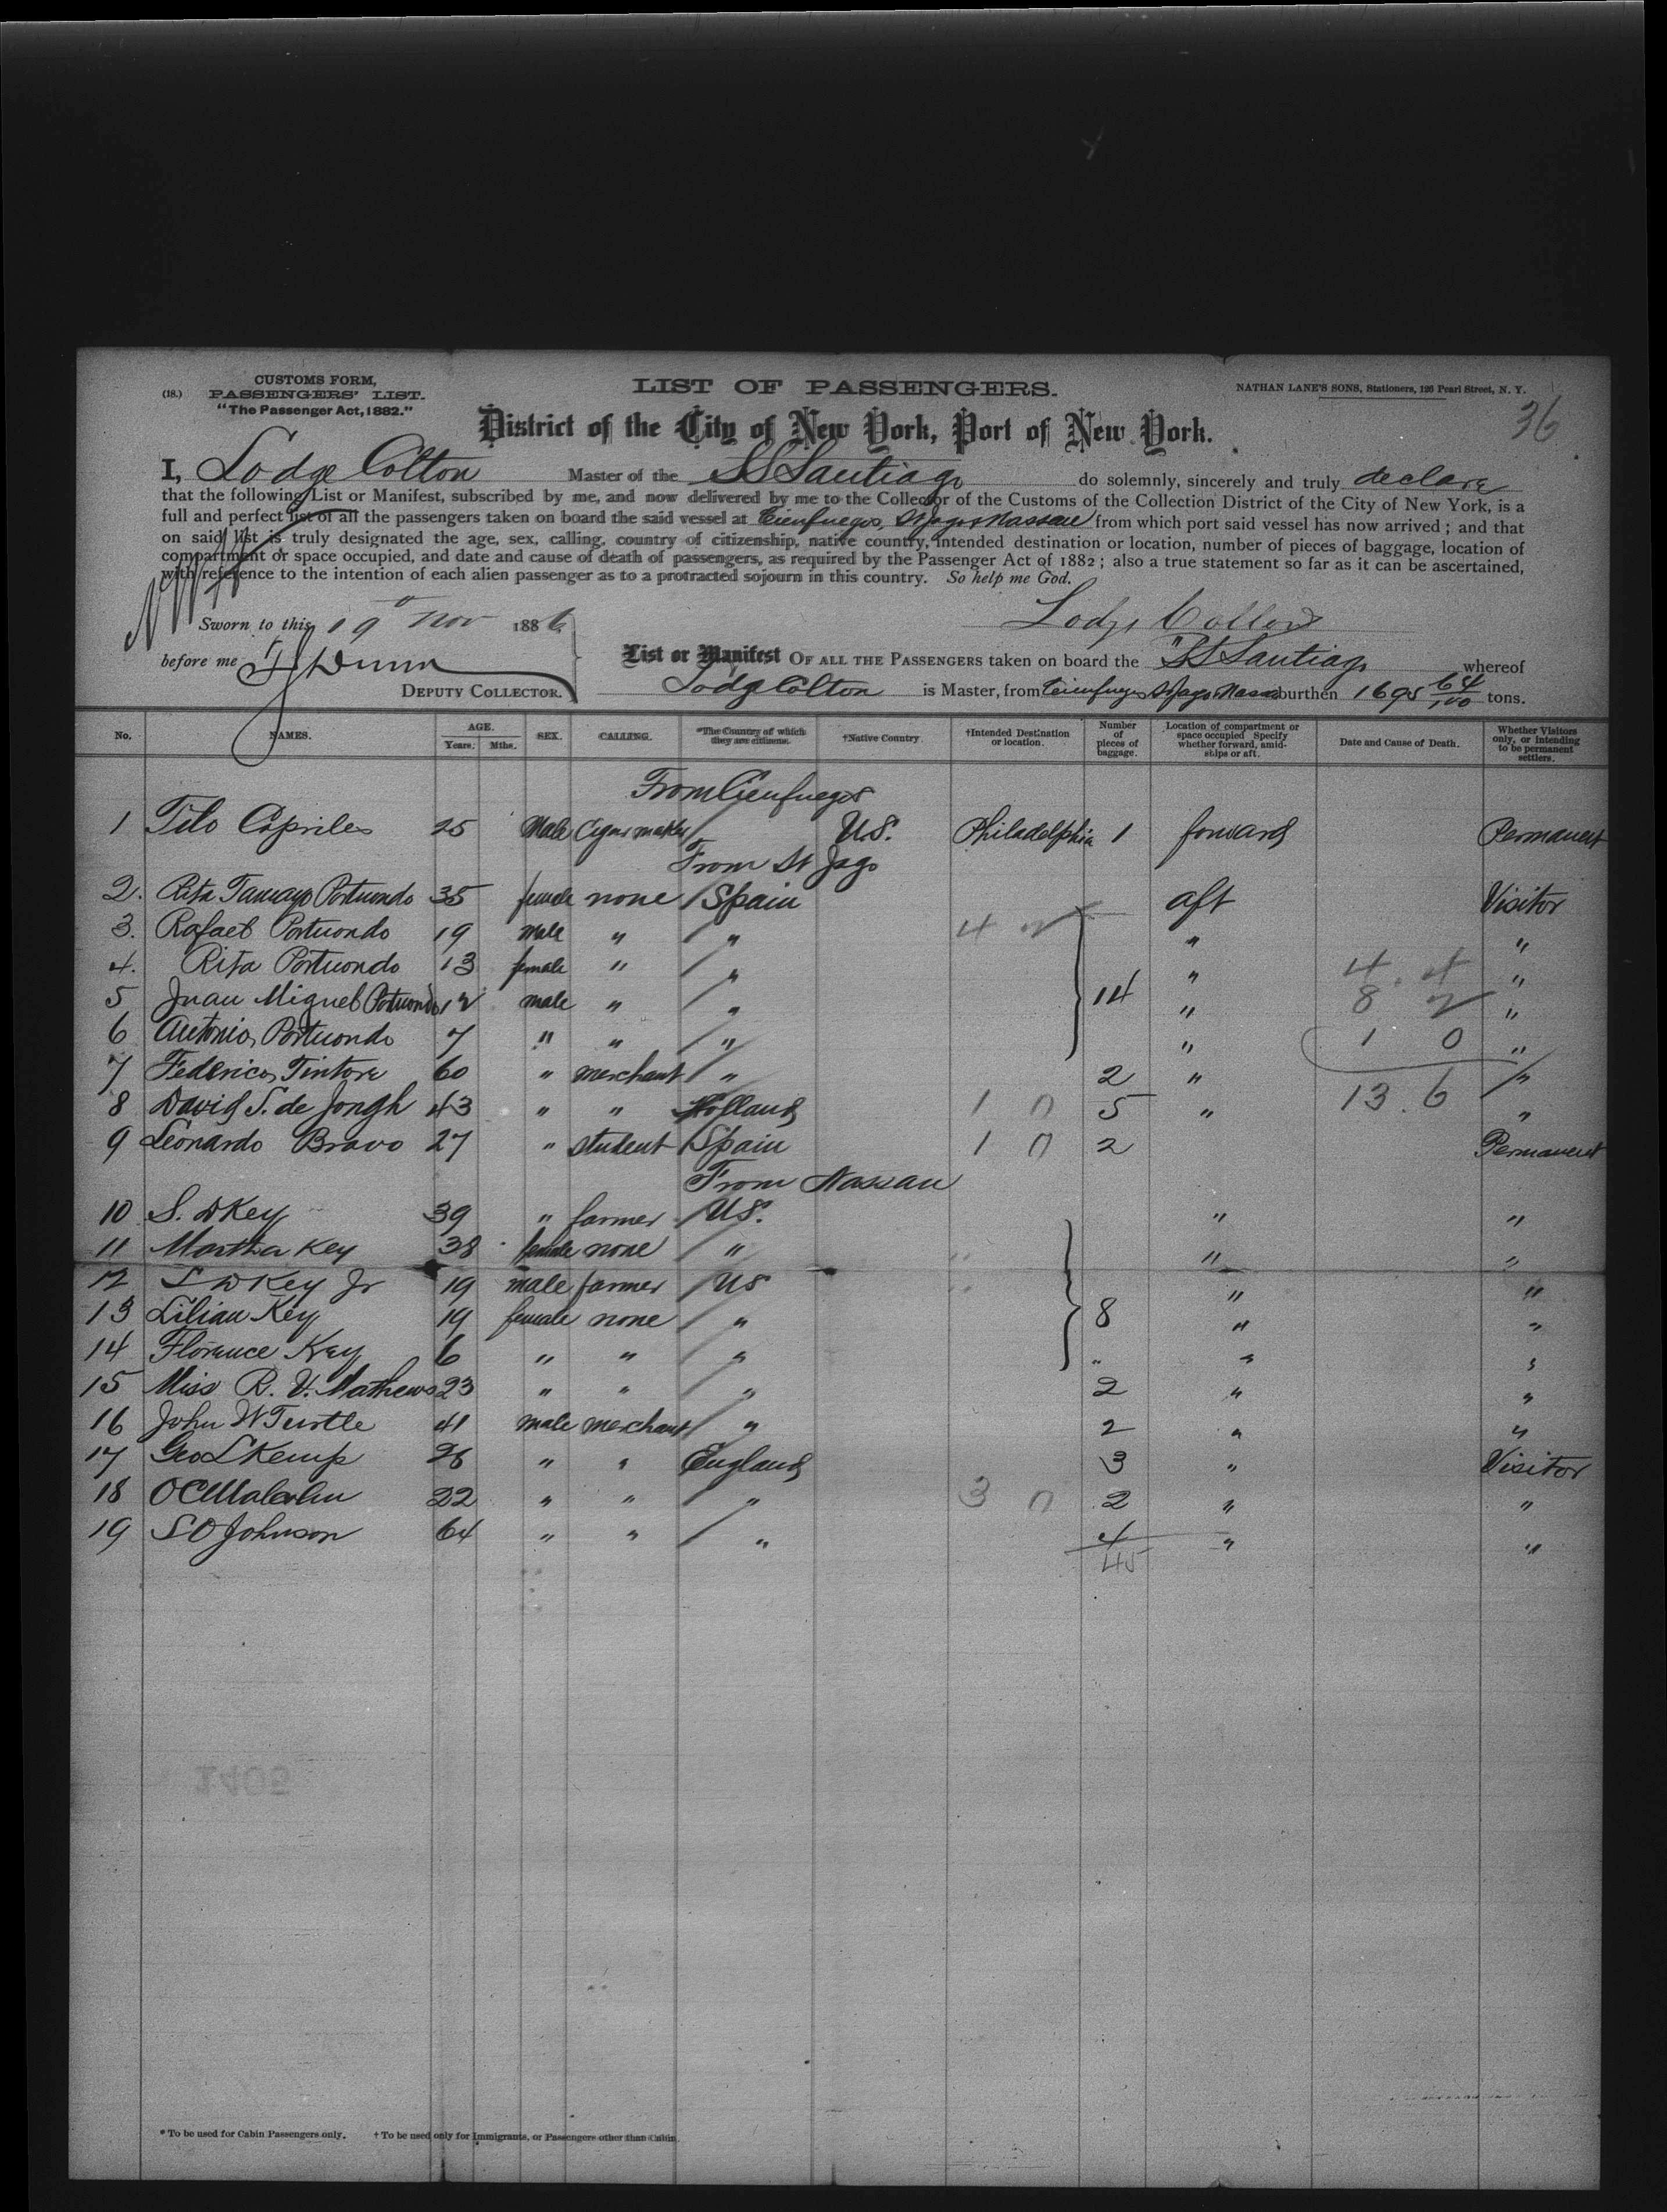 (18.) CUSTOMS FORM,
PASSENGERS' LIST.
"The Passenger Act, 1882."
LIST OF PASSENGERS.
NATHAN LANE'S SONS, Stationers, 126 Pearl Street, N. Y.
36
District of the City of New York, Port of New York.
I, Lodge Colton Master of the SS Santiago do solemnly, sincerely and truly declare
that the following List or Manifest, subscribed by me, and now delivered by me to the Collector of the Customs of the Collection District of the City of New York, is a
full and perfect list of all the passengers taken on board the said vessel at Cienfuegos, St Jago Nassau from which port said vessel has now arrived; and that
on said list is truly designated the age, sex, calling, country of citizenship, native country, intended destination or location, number of pieces of baggage, location of
compartment or space occupied, and date and cause of death of passengers, as required by the Passenger Act of 1882; also a true statement so far as it can be ascertained,
with reference to the intention of each alien passenger as to a protracted sojourn in this country. So help me God.
Sworn to this 19 Nov 1886
Lodge Colton
before me Dunn
DEPUTY COLLECTOR.
List or Manifest OF ALL THE PASSENGERS taken on board the SS Santiago whereof
Lodge Colton is Master, from Cienfuegos St Jago Nassau burthen 1695 64/100 tons.
No. NAMES. AGE. Years. Mths. SEX. CALLING. *The Country of which they are citizens. †Native Country. †Intended Destination or location. Number of pieces of baggage. Location of compartment or space occupied Specify whether forward, amidships or aft. Date and Cause of Death. Whether Visitors only, or intending to be permanent settlers.
From Cienfuegos
1 Tilo Capriles 25 Male Cigar maker / U.S. Philadelphia 1 forward Permanent
From St Jago
2. Rita Tamayo Portuondo 35 female none / Spain aft Visitor
3. Rafael Portuondo 19 male " / " 4 2 " "
4. Rita Portuondo 13 female " / " " 4. 4 "
5 Juan Miguel Portuondo 12 male " / " 14 " 8 2 "
6 Antonio Portuondo 7 " " / " " 1 0 "
7 Federico Tintore 60 " merchant / " 2 " "
8 David S. de Jongh 43 " " Holland 1 0 5 " 13. 6 "
9 Leonardo Bravo 27 " student / Spain 1 0 2 Permanent
From Nassau
10 S. D Key 39 " farmer / U.S. " "
11 Martha Key 38 female none / " " "
12 S D Key Jr 19 male farmer / US " "
13 Lilian Key 19 female none / " 8 " "
14 Florence Key 6 " " / " " " "
15 Miss R. V. Mathews 23 " " / " 2 " "
16 John W Turtle 41 male merchant / " 2 " "
17 Geo L Kemp 26 " " England 3 " Visitor
18 O C Malcolm 22 " " / " 3 0 2 " "
19 S O Johnson 64 " " / " 4 " "
45
1405
* To be used for Cabin Passengers only. † To be used only for Immigrants, or Passengers other than Cabin.